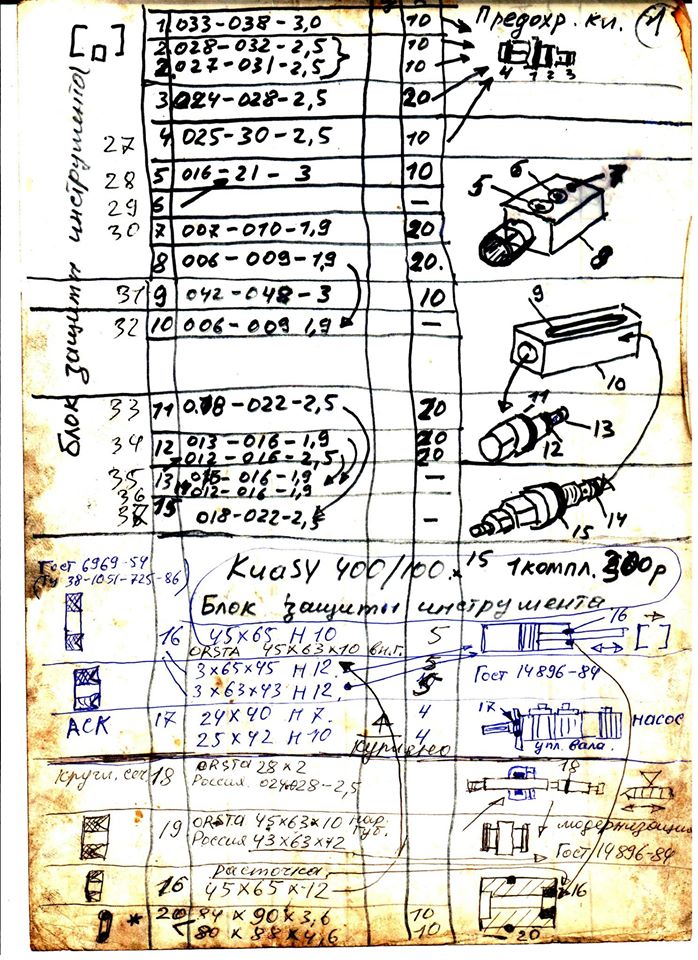 1 033-038-3,0 10 Предохр. кл. 1
2 028-032-2,5 10
2 027-031-2,5 10
4 1 2 3
3 024-028-2,5 20
27 4 025-30-2,5 10
28 5 016-21-3 10
29 6 —
30 7 007-010-1,9 20
8 006-009-1,9 20.
5 6 7 8
блок защиты инструмента
31 9 042-048-3 10
32 10 006-009 1,9 —
9 10
33 11 018-022-2,5 20
34 12 013-016-1,9 20
012-016-2,5 20
11 12 13
35 13 015-016-1,9 —
36 012-016-1,9
37 15 018-022-2,5 —
14 15
Гост 6969-54
ТУ 38-1051-725-86)
KuASY 400/100. x 15 1 компл. 300р
Блок защиты инструмента
16 45x65 H10 5 16
ORSTA 45x63x10 вн.г.
3x65x45 H12. 5
3x63x43 H12, 5 Гост 14896-84
АСК 17 24x40 H7. 4 17 насос
25x42 H10 4 упл. вала.
куплено
кругл. сеч. 18 ORSTA 28x2 18
Россия. 024-028-2,5
19 ORSTA 45x63x10 нар. губ.
Россия 43x63x42
модернизация
Гост 14896-84
расточка,
16 45x65x-12 16
* 20 84x90x3,6 10
80x88x4,6 10
20